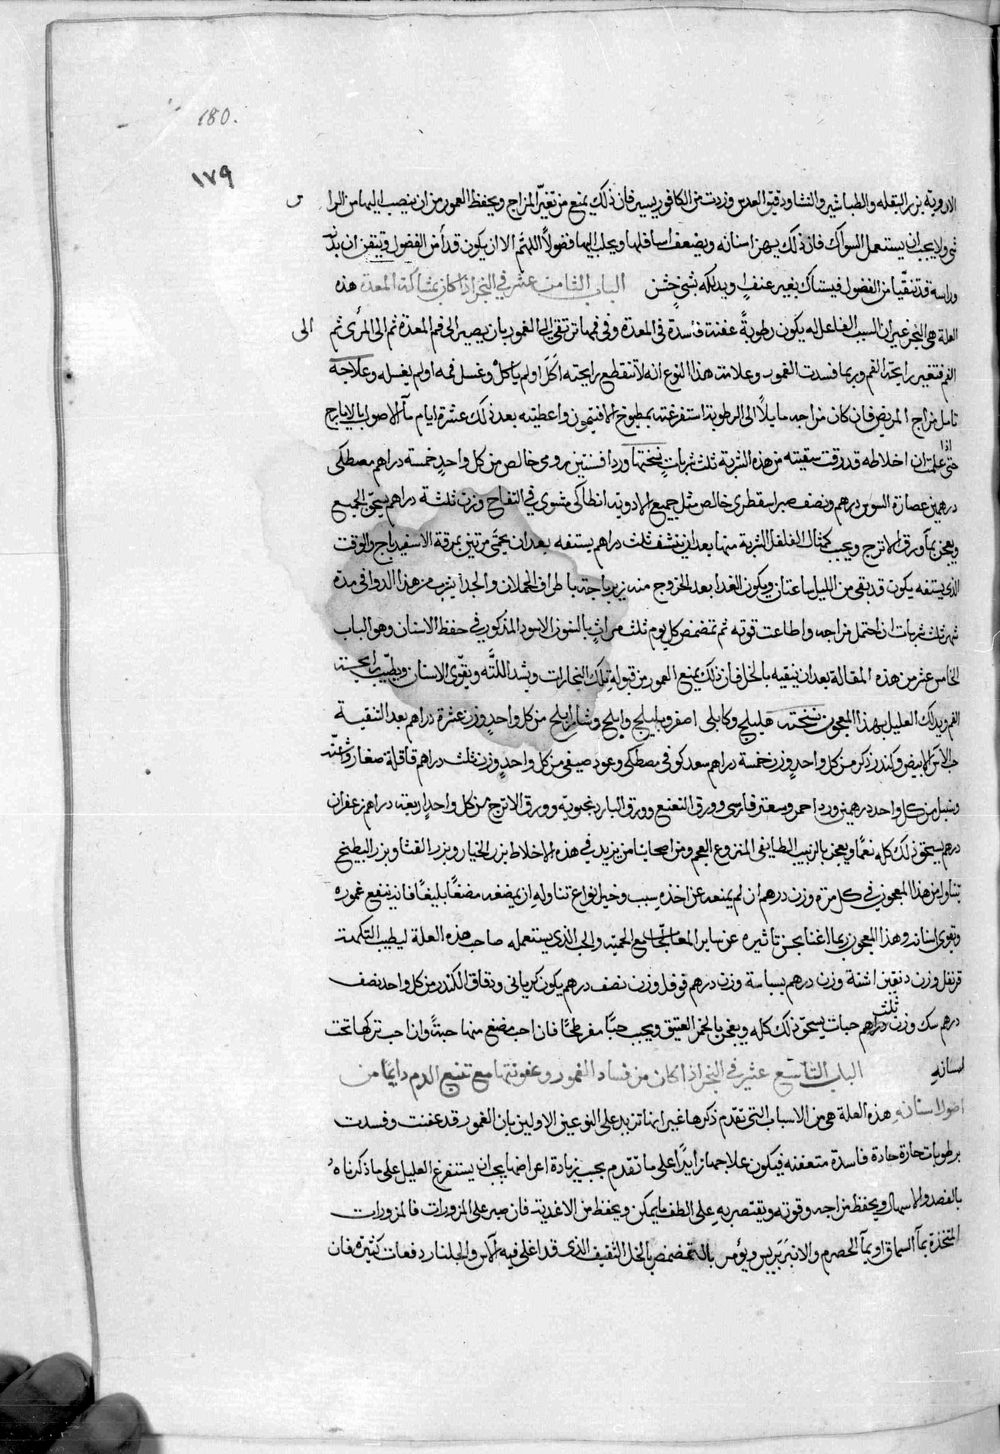 180.
١٧٩
الادوية بزر البقله والطباشير والنشا ودقيق العدس وزدت من الكافور يسير فان ذلك يمنع من تغيّر المزاج ويحفظ العمور من ان ينصب اليها من الرا
شئ ولا يجب ان يستعمل السواك فان ذلك يهز اسنانه ويضعف اسافلها ويجلب اليها فضولاً اللهم الا ان يكون قد أمن الفضول وتيقن ان بدنه
وراسه قد تنقّيا من الفضول فيستاك بغير عنف ويدلكه بشئ خشن الباب الثامن عشر في البخر اذا كان بمشاركة المعدة هذه
العلة هي البخر غير ان السبب الفاعل له يكون رطوبةً عفنة فاسدة في المعدة وفي فمها ترتقي الى العمور بان يصير الى فم المعدة ثم الى المرئ ثم الى
الفم فتغير رايحة الفم وربما فسدت العمور وعلامة هذا النوع انه لا تنقطع رايحته اكل او لم ياكل وغسل فمه او لم يغسله وعلاجه
تامل مزاج المريض فان كان مزاجه مايلاً الى الرطوبة استفرغته بمطبوخ الافتيمون واعطيته بعد ذلك عشرة ايام مآ الاصول بالايارج
حتى اذا علمت ان اخلاطه قد رقت سقيته من هذه الشربة ثلث شربات نسختها ورد افسنتين رومى خالص من كل واحد خمسة دراهم مصطكى
درهمين عصارة السوس درهم ونصف صبر اسقطرى خالص مثل جميع الادوية انطاكى مشوى في التفاح وزن ثلثة دراهم يسحق الجميع
ويعجن بمآ ورق الاترج ويحبب كمثال الفلفل الشربة منها بعد ان تنشف ثلث دراهم يستفه بعد ان يحمّى مرتين بمرقة الاسفيدباج والوقت
الذى يستفه يكون قد بقى من الليل ساعتان ويكون الغدا بعد الخروج منه زيرباجة باطراف الحملان والجدا يشرب من هذا الدوا فى مدة
شهر ثلث شربات ان احتمل مزاجه واطاعت قوته ثم تمضمض كل يوم ثلث مرات بالسنون الاسود المذكور في حفظ الاسنان وهو الباب
الخامس عشر من هذه المقالة بعد ان ينقيه بالخل فان ذلك يمنع العمور من قبول تلك البخارات ويشد اللثّه ويقوّى الاسنان ويطيّب رايحة
الفم ويدلك العليل بهذا المعجون نسخته هليلج وكابلى اصفر وبليلج واملج وشيراملج من كل واحد وزن عشرة دراهم بعد التنقية
حب الآس الابيض وكندر ذكر من كل واحد وزن خمسة دراهم سعد كوفى مصطكى وعود صيفى من كل واحد وزن ثلث دراهم قاقلة صغار واشنه
وسنبل من كل واحد درهمين ورد احمر وسعتر فارسى وورق النعنع وورق البادرنجبويه وورق الاترج من كل واحد اربعة دراهم زعفران
درهم يسحق ذلك كله نعمًا ويعجن بالزبيب الطايفى المنزوع العجم ومن اصحابنا من يزيد في هذه الاخلاط بزر الخيار وبزر القثا وبزر البطيخ
يتناول من هذا المعجون في كل مرة وزن درهم ان لم يمنعه عن اخذه سبب وخير انواع تناوله ان يمضغه مضغًا بليغًا فانه ينفع عموره
وتقوى اسنانه وهذا المعجون ربما اغنا بحسن تاثيره عن ساير المعالجات مع الحمية والحب الذى يستعمله صاحب هذه العلة ليطيب النكهة
قرنفل وزن دنقين اشنة وزن درهم بسباسة وزن درهم فوفل وزن نصف درهم يكون كرمانى ودقاق الكندر من كل واحد نصف
درهم سك وزن ثلث دراهم حبات يسحق ذلك كله ويعجن بالخمر العتيق ويحبب حبًا مفرطحًا فان احب مضغ منها حبةً وان احب تركها تحت
لسانه الباب التاسع عشر في البخر اذا كان من فساد العمور وعفونتها مع تتبع الدم دايمًا من
اصول اسنانه هذه العلة هى من الاسباب التى تقدم ذكرها غير انها تزيد على النوعين الاولين بان العمور قد عفنت وفسدت
برطوبات حارة حادة فاسدة متعفنه فيكون علاجها زايدًا على ما تقدم بحسب زيادة اعراضها يجب ان يستفرغ العليل على ما ذكرناه
بالفصد والاسهال ويحفظ مزاجه وقوته ويقتصر به على الطف ما يمكن ويحفظ من الاغذية فان صبر على المزورات فالمزورات
المتخذة بمآ السماق او بمآ الحصرم والانبرباريس ويؤمر بالتمضمض بالخل الثقيف الذى قد اغلى فيه الآس والجلنار دفعات كثيرة فان